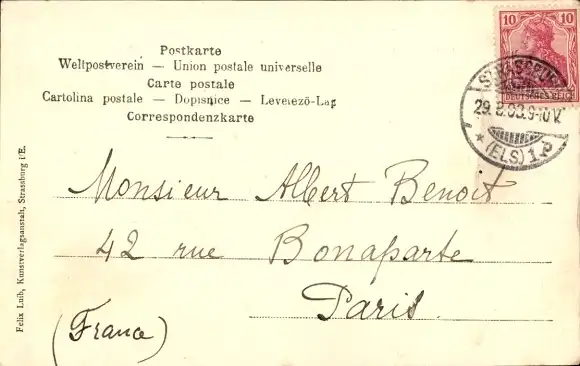 Postkarte
Weltpostverein — Union postale universelle
Carte postale
Cartolina postale — Dopisnice — Levelező-Lap
Correspondenzkarte
10 10
DEUTSCHES REICH
STRASSBURG
9-10 V.
* (ELS) 1.
Monsieur Albert Benoit
42 rue Bonaparte
Paris
(France)
Felix Luib, Kunstverlagsanstalt, Strassburg i/E.